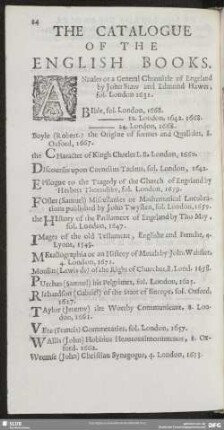 84
THE CATALOGUE
OF THE
ENGLISH BOOKS.
ANnales or a General Chronicle of England
by John Stow and Edmund Howes,
fol. London 1631.
BIble, fol. London, 1668.
12. London, 1642. 1668.
24. London, 1668.
Boyle (Robert.) the Origine of formes and Qualities, 8.
Oxford, 1667.
the CHaracter of King Charles I. 8. London, 1660.
DIscourses upon Cornelius Tacitus, fol. London, 1642.
EPilogue to the Tragedy of the Church of England by
Herbert Thorndike, fol. London, 1659.
FOster (Samuel) Miscellanies or Mathematical Lucubra-
tions published by John Twysden, fol. London, 1659.
the HIstory of the Parliament of England by Tho May,
fol. London, 1647.
IMages of the old Testament, Englishe and Frenche, 4.
Lyons, 1549.
MEtallographia or an History of Metals by John Webster,
4. London, 1671.
Moulin (Lewis du) of the Right of Churches, 8. Lond. 1658.
PUrchas (Samuel) his Pilgrimes, fol. London, 1625.
RIchardson (Gabriel) of the State of Europe, fol. Oxford.
1627.
TAylor (Jeremy) the Worthy Communicant, 8. Lon-
don, 1661.
VEre (Francis) Commentaries, fol. London, 1657.
WAllis (John) Hobbius Heautontimorumenos, 8. Ox-
ford. 1662.
Weemse (John) Christian Synagogue, 4. London, 1633.